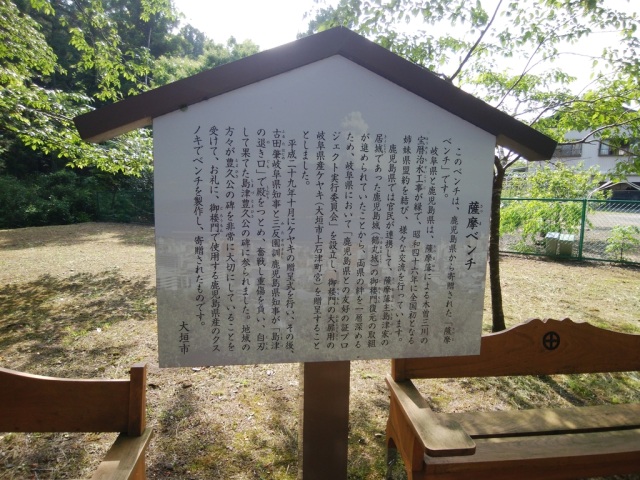 薩摩ベンチ
このベンチは、鹿児島県から寄贈された「薩摩
ベンチ」です。
岐阜県と鹿児島県は、薩摩藩による木曽三川の
宝暦治水工事が縁で、昭和四十六年に全国初となる
姉妹県盟約を結び、様々な交流を行っています。
鹿児島県では官民が連携して、薩摩藩主島津家の
居城であった鹿児島城（鶴丸城）の御楼門復元の取組
が進められていたことから、両県の絆を一層深める
ため、岐阜県において「鹿児島県との友好の証プロ
ジェクト実行委員会」を設立し、御楼門の大扉用の
岐阜県産ケヤキ（大垣市上石津町宮）を贈呈すること
としました。
平成二十九年十月にケヤキの贈呈式を行い、その後、
古田肇岐阜県知事と三反園訓鹿児島県知事が「島津
の退き口」で殿をつとめ、奮戦し重傷を負い、自刃
して果てた島津豊久公の碑を訪ねられました。地域の
方々が豊久公の碑を非常に大切にしていることを
受けて、お礼に、御楼門で使用する鹿児島県産のクス
ノキでベンチを製作し、寄贈されたものです。
大垣市